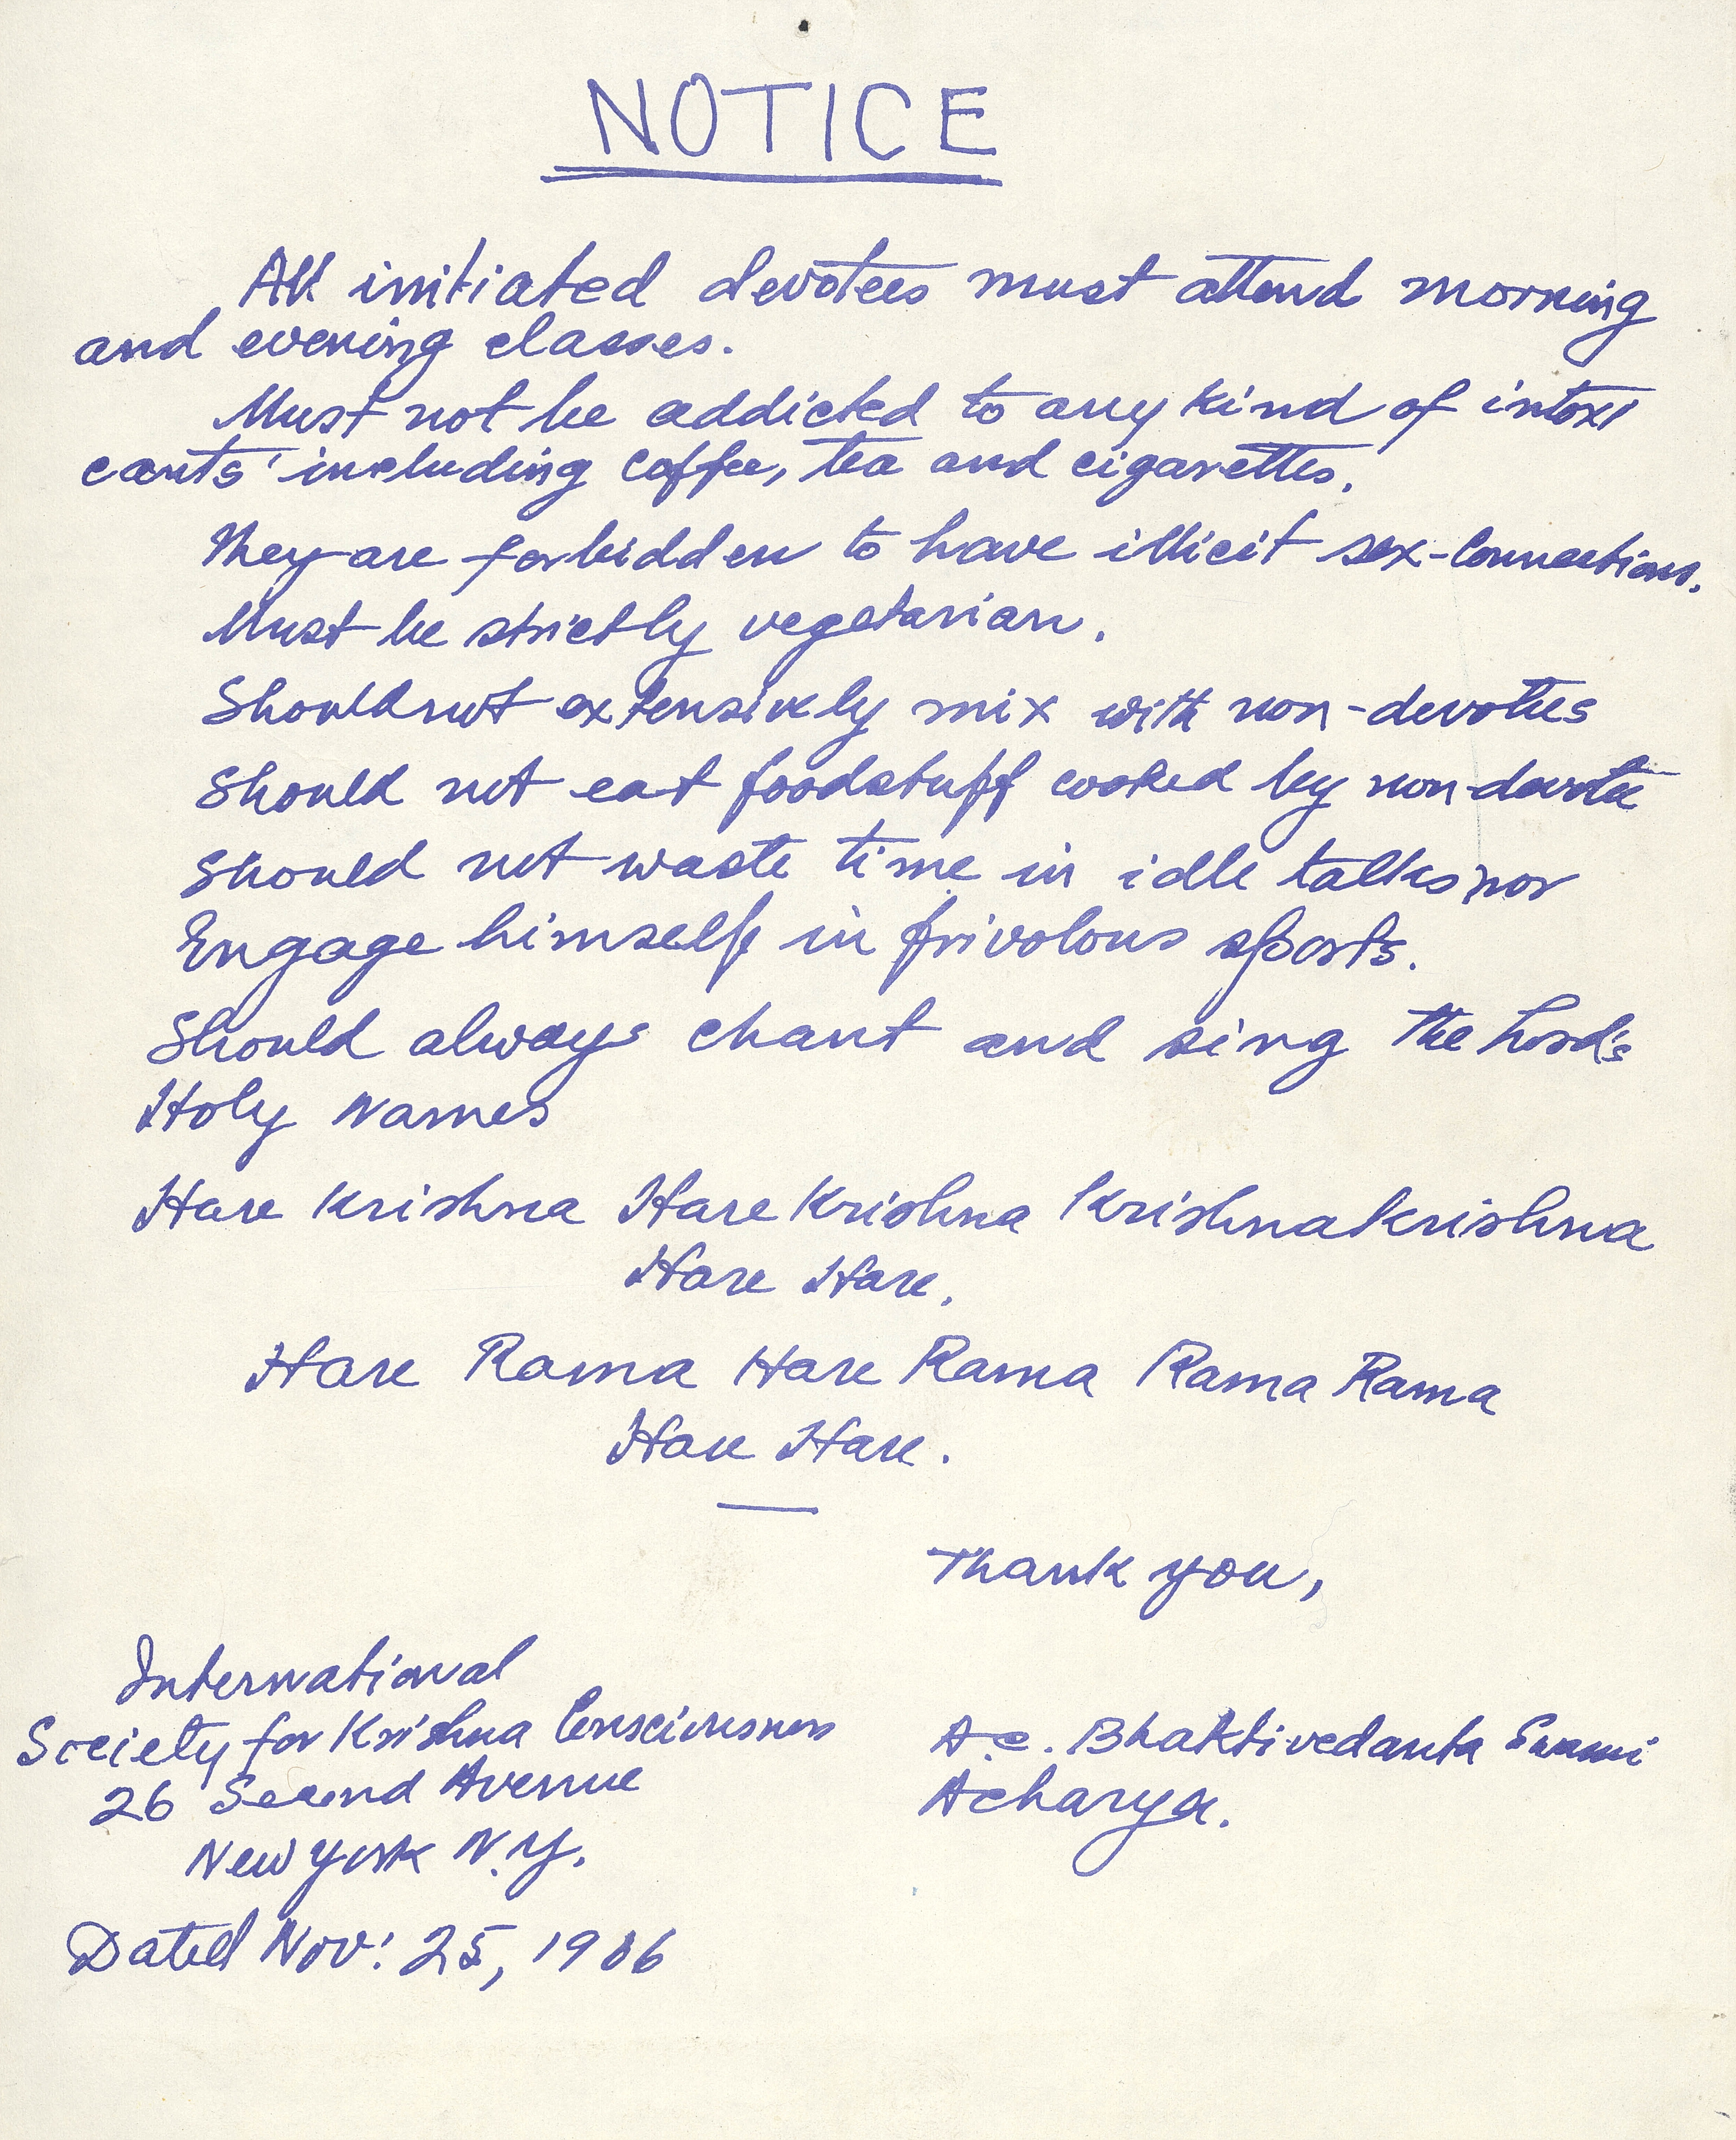 NOTICE
All initiated devotees must attend morning
and evening classes.
Must not be addicted to any kind of intoxi
cants' including coffee, tea and cigarettes.
They are forbidden to have illicit sex-connections.
Must be strictly vegetarian.
Should not extensively mix with non-devotees
Should not eat foodstuff cooked by non-devotee
Should not waste time in idle talks nor
Engage himself in frivolous sports.
Should always chant and sing the Lord's
Holy Names
Hare Krishna Hare Krishna Krishna Krishna
Hare Hare.
Hare Rama Hare Rama Rama Rama
Hare Hare.
Thank you,
International
Society for Krishna Consciousness
26 Second Avenue
New York N.Y.
Dated Nov: 25, 1966
A.C. Bhaktivedanta Swami
Acharya.